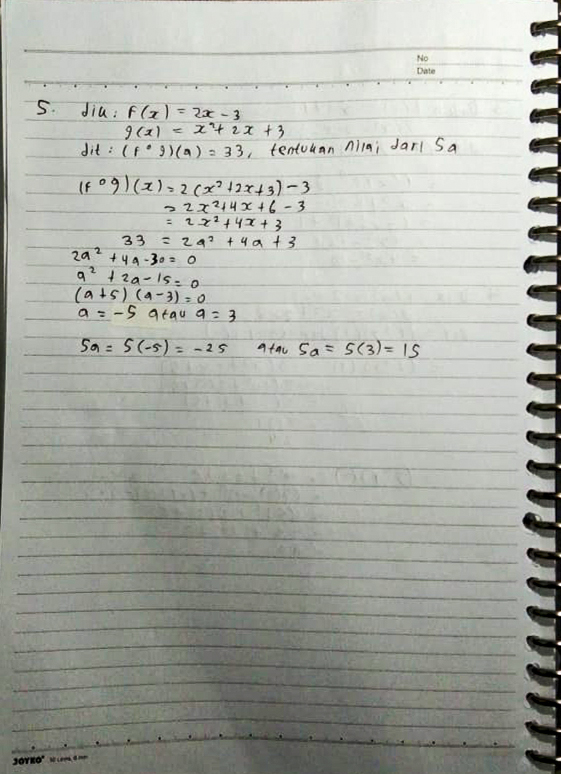 No
Date
5. dik : f(x) = 2x - 3
g(x) = x² + 2x + 3
dit : (f ° g)(a) = 33, tentukan nilai dari 5a
(f ° g)(x) = 2(x² + 2x + 3) - 3
= 2x² + 4x + 6 - 3
= 2x² + 4x + 3
33 = 2a² + 4a + 3
2a² + 4a - 30 = 0
a² + 2a - 15 = 0
(a + 5) (a - 3) = 0
a = -5 atau a = 3
5a = 5(-5) = -25 atau 5a = 5(3) = 15
JOYKO